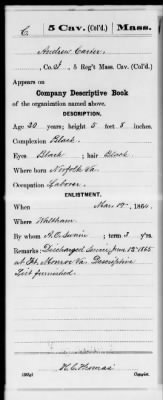 C. 5 Cav. (Col'd.) Mass.
Andrew Carter
, Co. I, 5 Reg't Mass. Cav. (Col'd.)
Appears on
Company Descriptive Book
of the organization named above.
DESCRIPTION.
Age 20 years; height 5 feet 8 inches.
Complexion Black
Eyes Black; hair Black
Where born Norfolk Va.
Occupation Laborer
ENLISTMENT.
When Mar 19, 1864.
Where Waltham
By whom term 3 y'rs.
Remarks: Discharged Service, June 12 1865
at Ft. Monroe Va. Descriptive
List furnished.
H. C. Thomas
Copyist.